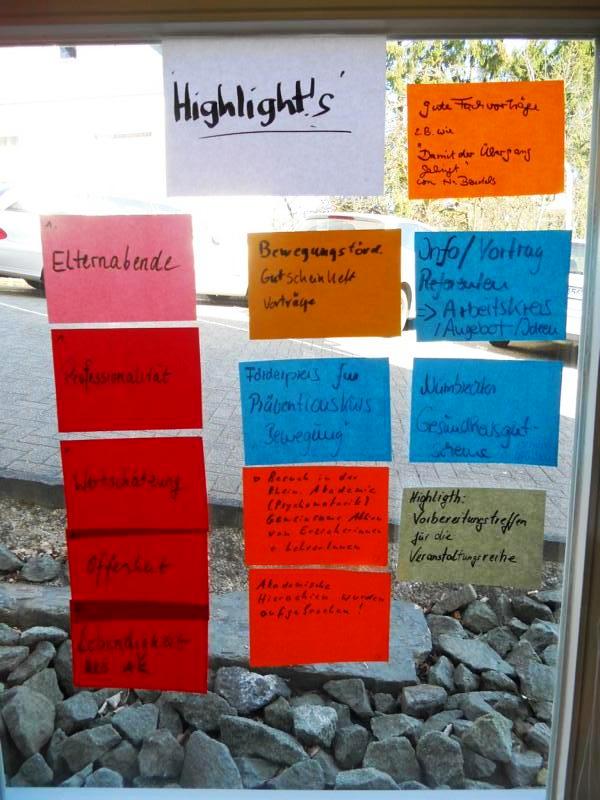 'Highlight's'
gute Fachvorträge
z.B. wie
"Damit der Übergang
gelingt"
von Hr. 
Elternabende
Bewegungsförd.
Gutscheinheft
Vorträge
Info/Vortrag
Referenten
=> Arbeitskreis
/Angebot/Ideen
Professionalität
Förderpreis für
Präventionskurs
"Bewegung"
Nümbrechter
Gesundheitsgut-
scheine
Wertschätzung
Besuch in der
Rhein. Akademie
(Psychomotorik)
Gemeinsame Aktion
von Erzieherinnen
+ LehrerInnen
Highligth:
Vorbereitungstreffen
für die
Veranstaltungsreihe
Offenheit
Akademische
Hierachien wurden
aufgebrochen!
Lebendigkeit
des AK